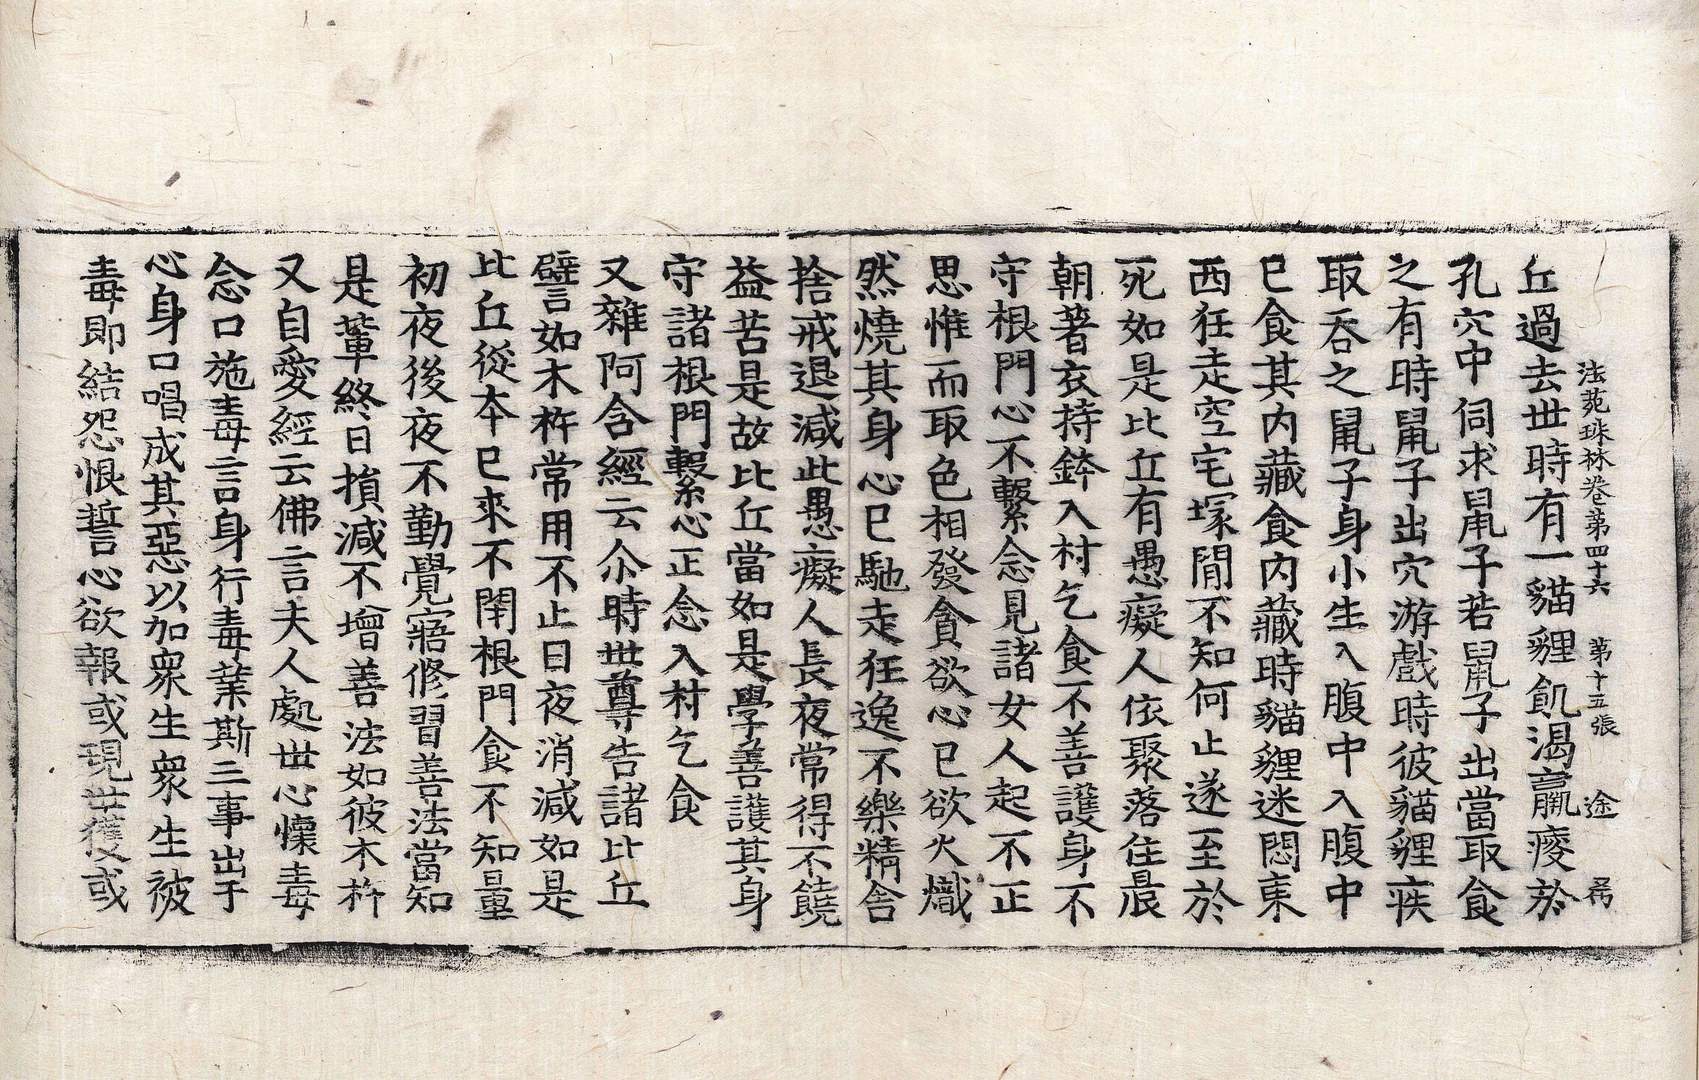 法苑珠林卷第四十六 第十五張 途
丘過去世時有一貓貍飢渴羸瘦於
孔穴中伺求鼠子若鼠子出當取食
之有時鼠子出穴游戲時彼貓貍疾
取吞之鼠子身小生入腹中入腹中
已食其内藏食内藏時貓貍迷悶東
西狂走空宅塚閒不知何止遂至於
死如是比丘有愚癡人依聚落住晨
朝著衣持鉢入村乞食不善護身不
守根門心不繫念見諸女人起不正
思惟而取色相發貪欲心已欲火熾
然燒其身心已馳走狂逸不樂精舍
捨戒退減此愚癡人長夜常得不饒
益苦是故比丘當如是學善護其身
守諸根門繫心正念入村乞食
又雜阿含經云尒時世尊告諸比丘
譬如木杵常用不止日夜消減如是
比丘從夲已來不閇根門食不知量
初夜後夜不勤覺寤修習善法當知
是輩終日損減不增善法如彼木杵
又自愛經云佛言夫人處世心懷毒
念口施毒言身行毒業斯三事出于
心身口唱成其惡以加衆生衆生被
毒即結怨恨誓心欲報或現世獲或